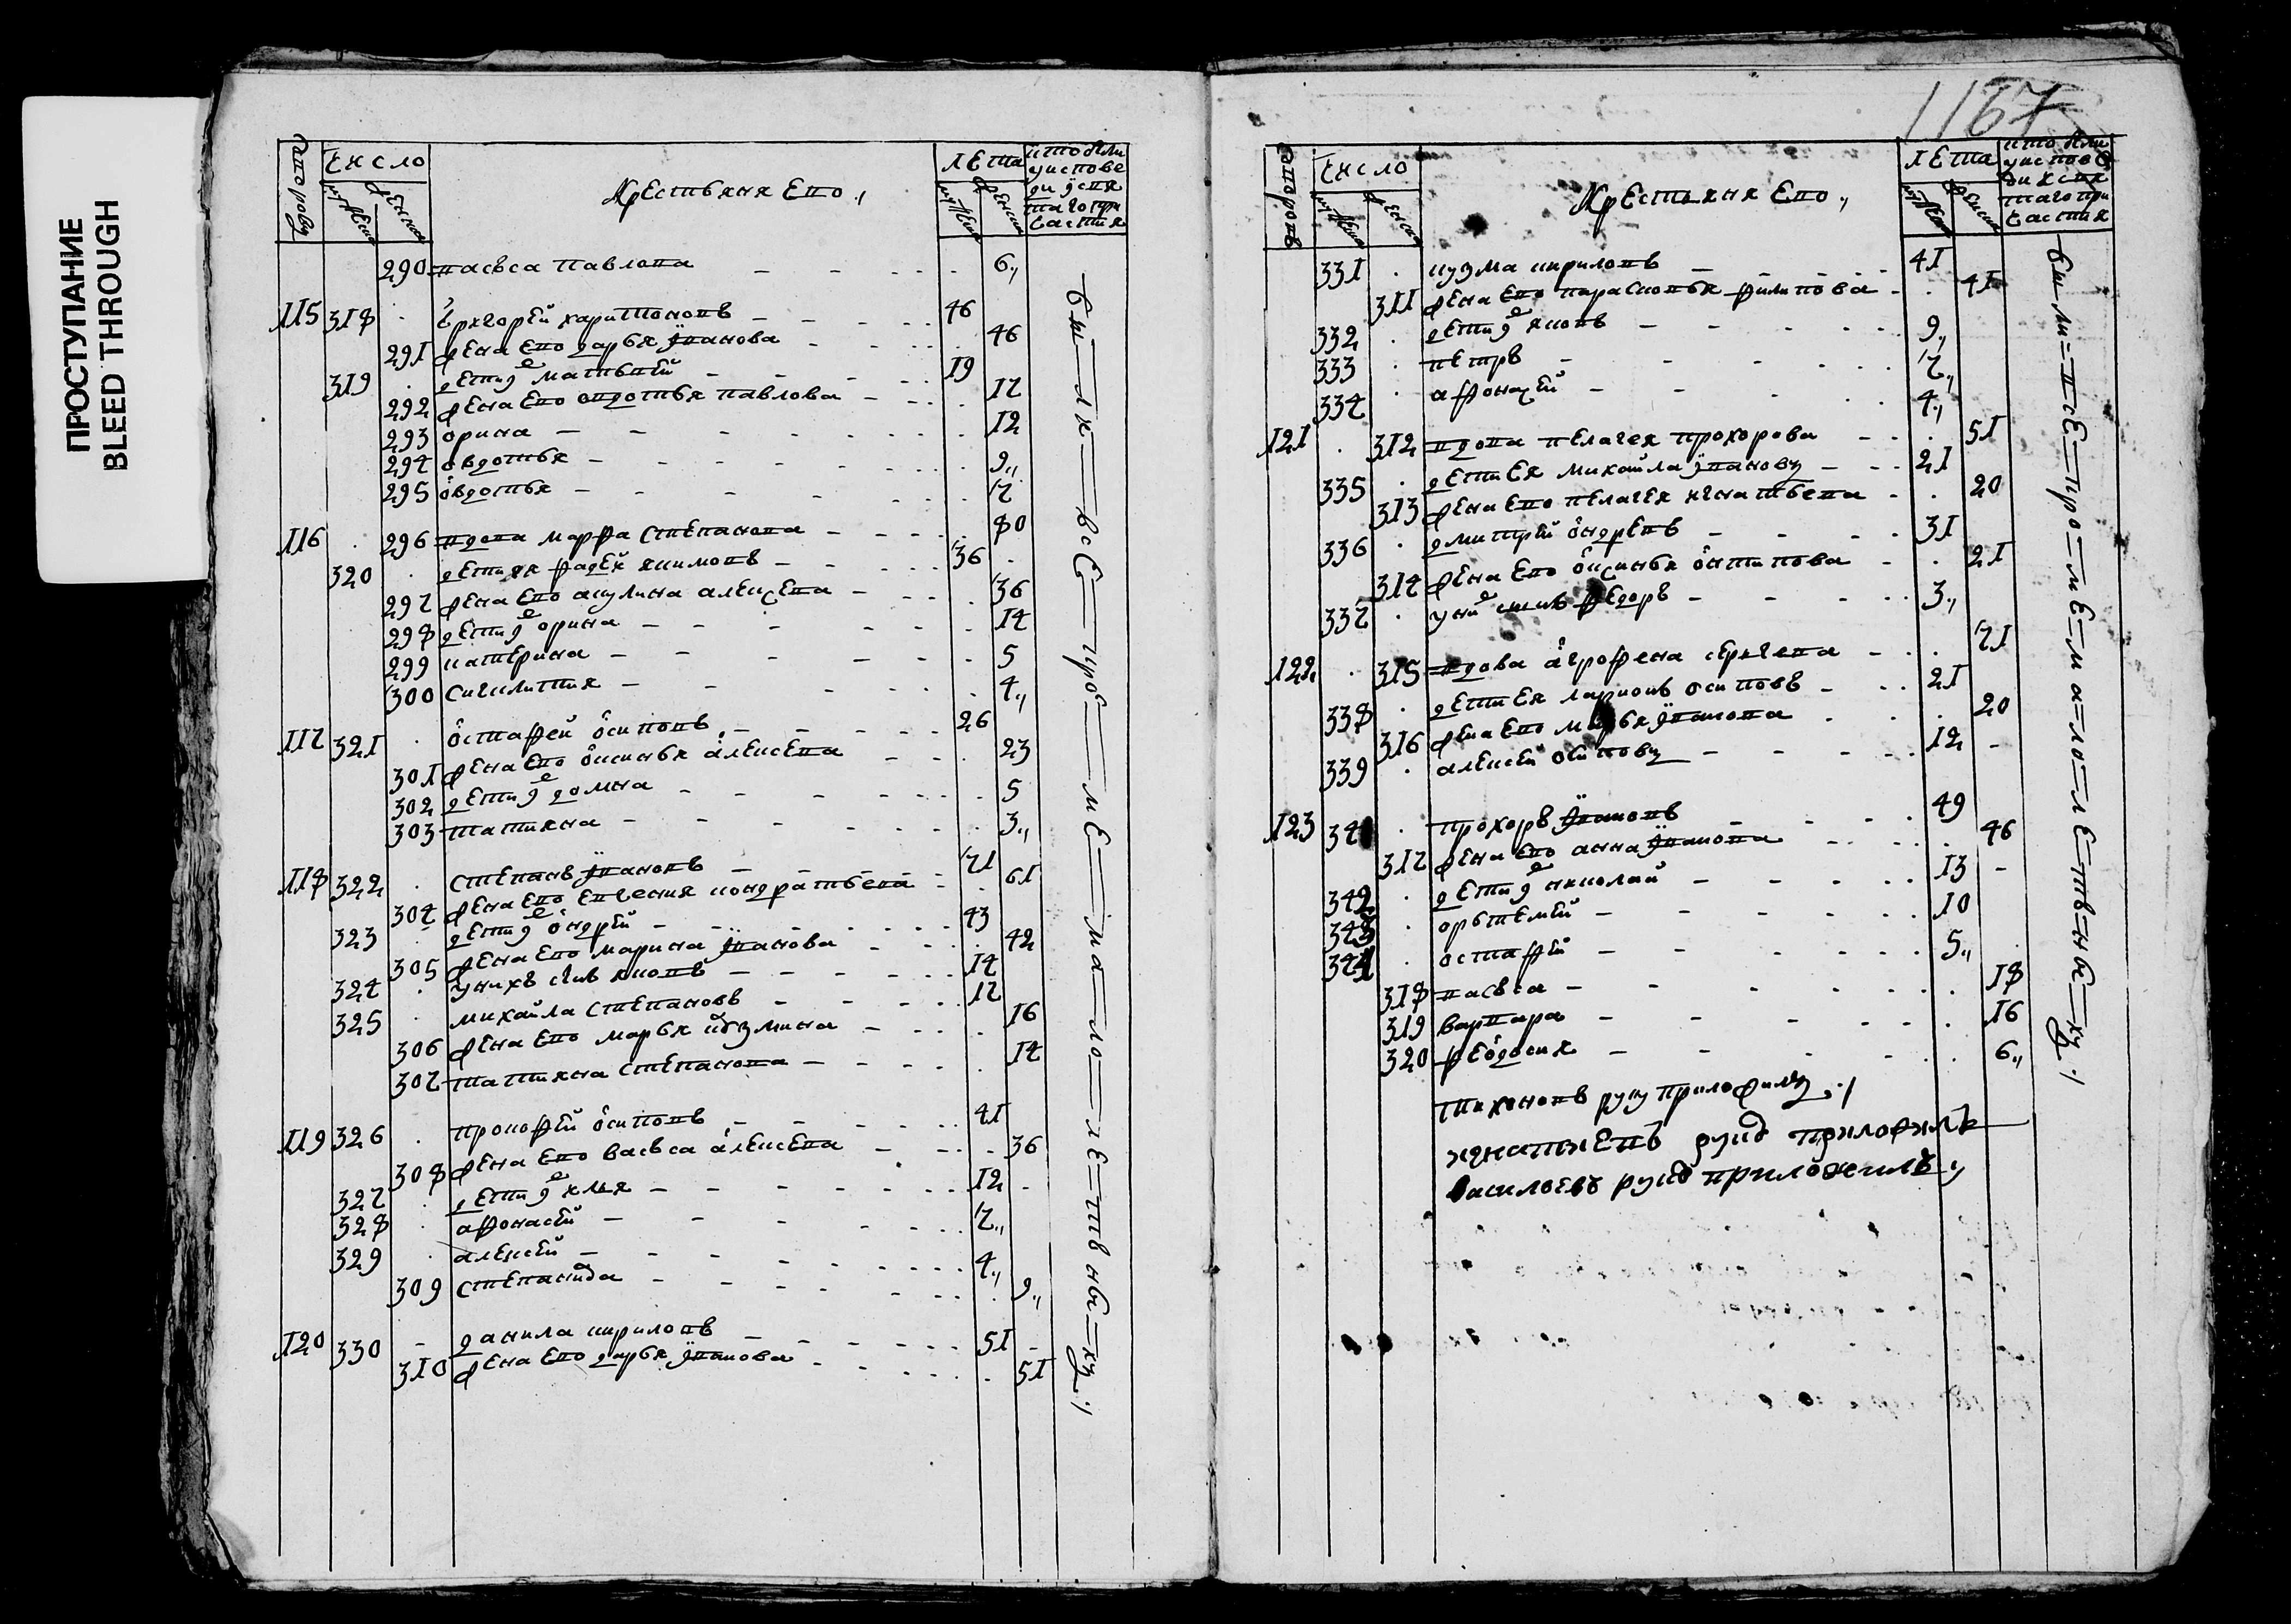 ПРОСТУПАНИЕ
BLEED THROUGH
дворовъ
Число
мужеска
женска
Крестьяня Его
лета
мужеска
женска
кто были
у исповеди
и у святаго при
частия
290 васьса павлова 6
115 318 григорей харитоновъ 46
291 жена Его дарья іванова 46
319 дети их матвьей 19
292 жена Его овдотья павлова 17
293 орина 12
294 овдотья 9
295 овдотья 7
116 296 вдова марфа степанова 80
320 дети ея фадей якимовъ 36
297 жена Его акулина алексева 36
298 дети их орина 14
299 катерина 5
300 сиклития 4
117 321 остафей осиповъ 26
301 жена Его оксинья алексева 23
302 дети их домна 5
303 татияна 3
118 322 степанъ івановъ 71
304 жена Его Евгения кондратьева 61
323 дети их ондрей 43
305 жена Его марина іванова 42
324 у них сынъ яковъ 14
325 михайла степановъ 17
306 жена Его марья кузмина 16
307 татияна степанова 14
119 326 прокофей осиповъ 41
308 жена Его васьса алексева 36
327 дети их илья 12
328 афонасей 7
329 алексей 4
309 степанида 9
120 330 данила кириловъ 51
310 жена Его дарья іванова 51
были все про ме ма ло летъ ны хъ
1167
дворовъ
Число
мужеска
женска
Крестьяня Его
лета
мужеска
женска
кто были
у исповеди
и у святаго при
частия
331 кузма кириловъ 41
311 жена Его парасковья филипова 41
332 дети их яковъ 9
333 петръ 7
334 афонасей 4
121 312 вдова пелагея прохорова 51
335 дети Ея михайла івановъ 21
313 жена Его пелагея игнатьева 20
336 дмитрей ондревъ 31
314 жена Его оксинья онтипова 21
337 у них сынъ федоръ 3
122 315 вдова аграфена сергева 71
338 дети Ея ларионъ осиповъ 21
316 жена Его марья іванова 20
339 алексей осиповъ 12
123 34 прохоръ івановъ 49
317 жена Его анна іванова 46
342 дети их николай 13
343 артемей 10
344 остафей 5
318 васьса 18
319 варвара 16
320 феодосия 6
были все про ме ма ло летъ ны хъ
тихоновъ руку приложилъ
игнатиевъ руку приложилъ
васильевъ руку приложилъ